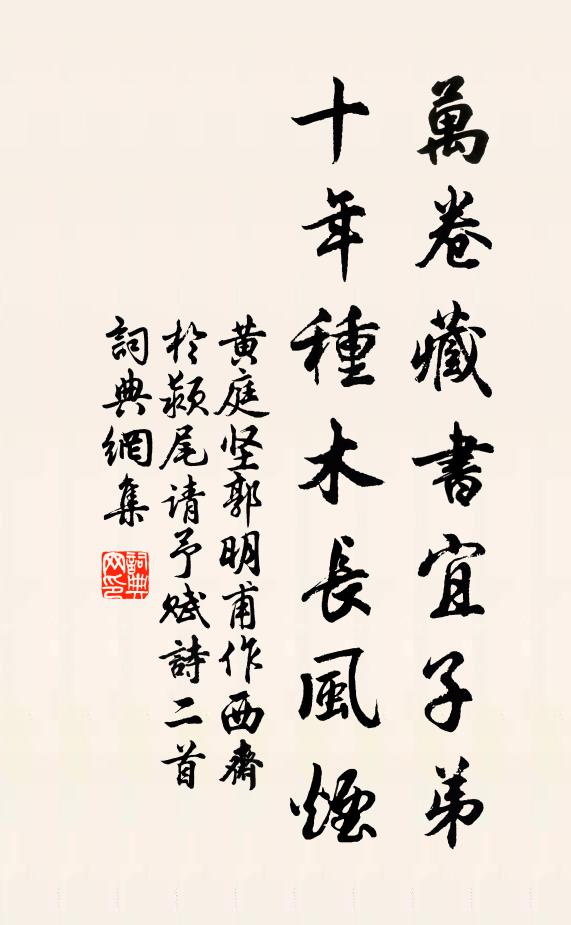 萬卷藏書宜子弟
十年種木長風煙
黄庭坚郭明甫作西齋
於潁尾请予賦詩二首
詞典網集
詞典
网印